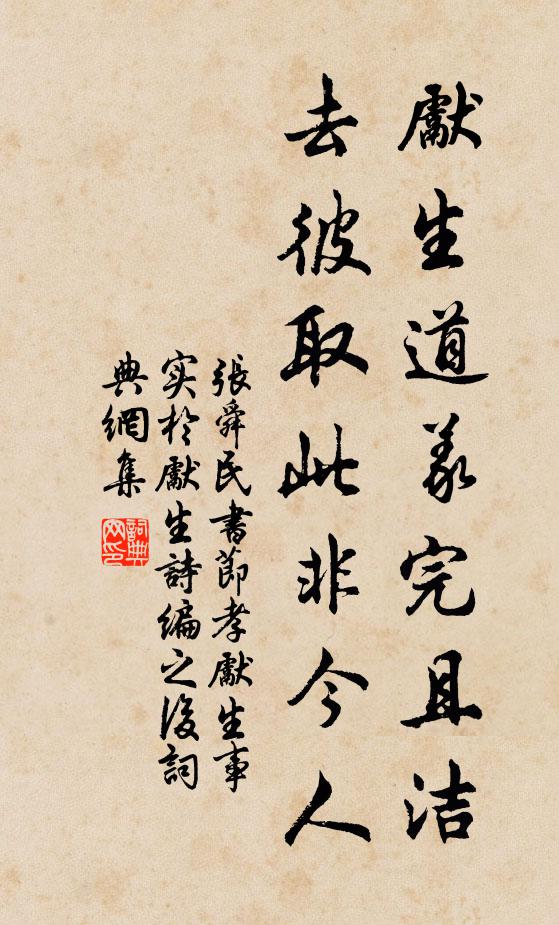 獻生道義完且洁
去彼取此非今人
張舜民書節孝獻生事
实於獻生詩編之後詞
典網集
詞典网印